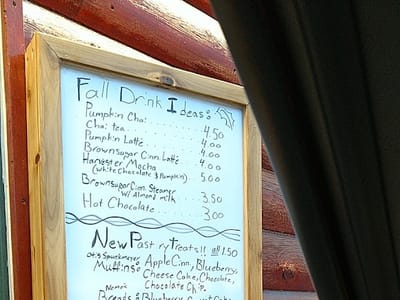 Fall Drink Ideas:
Pumpkin Chai ........ 4.50
Chai tea ........ 4.00
Pumpkin Latte ........ 4.00
Brownsugar Cinn. Latte .. 4.00
Hamster Mocha ..... 5.00
(white Chocolate & Pumpkin)
Brownsugar Cinn Steamer
w/ Almond milk ..... 3.50
Hot Chocolate ......... 3.00
New Pastry treats!! all 1.50
Muffins: Apple Cinn, Blueberry,
Cheese Cake, Chocolate,
Chocolate Chip.
Breads: Blueberry